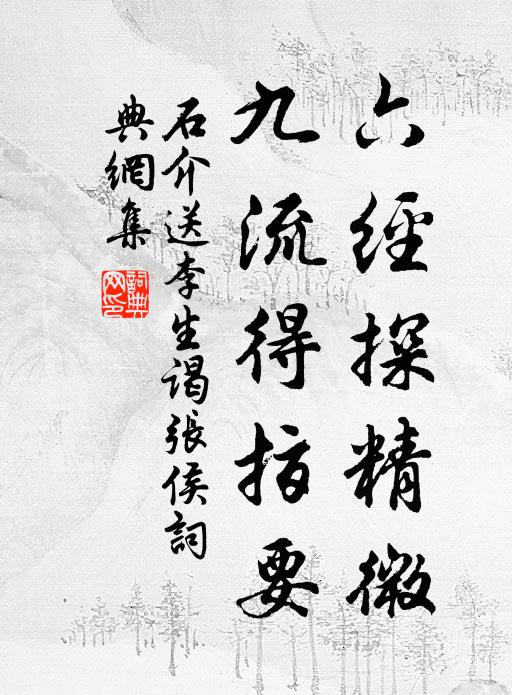 六經探精微
九流得指要
石介送李生謁張侯詞
典網集
詞典網印